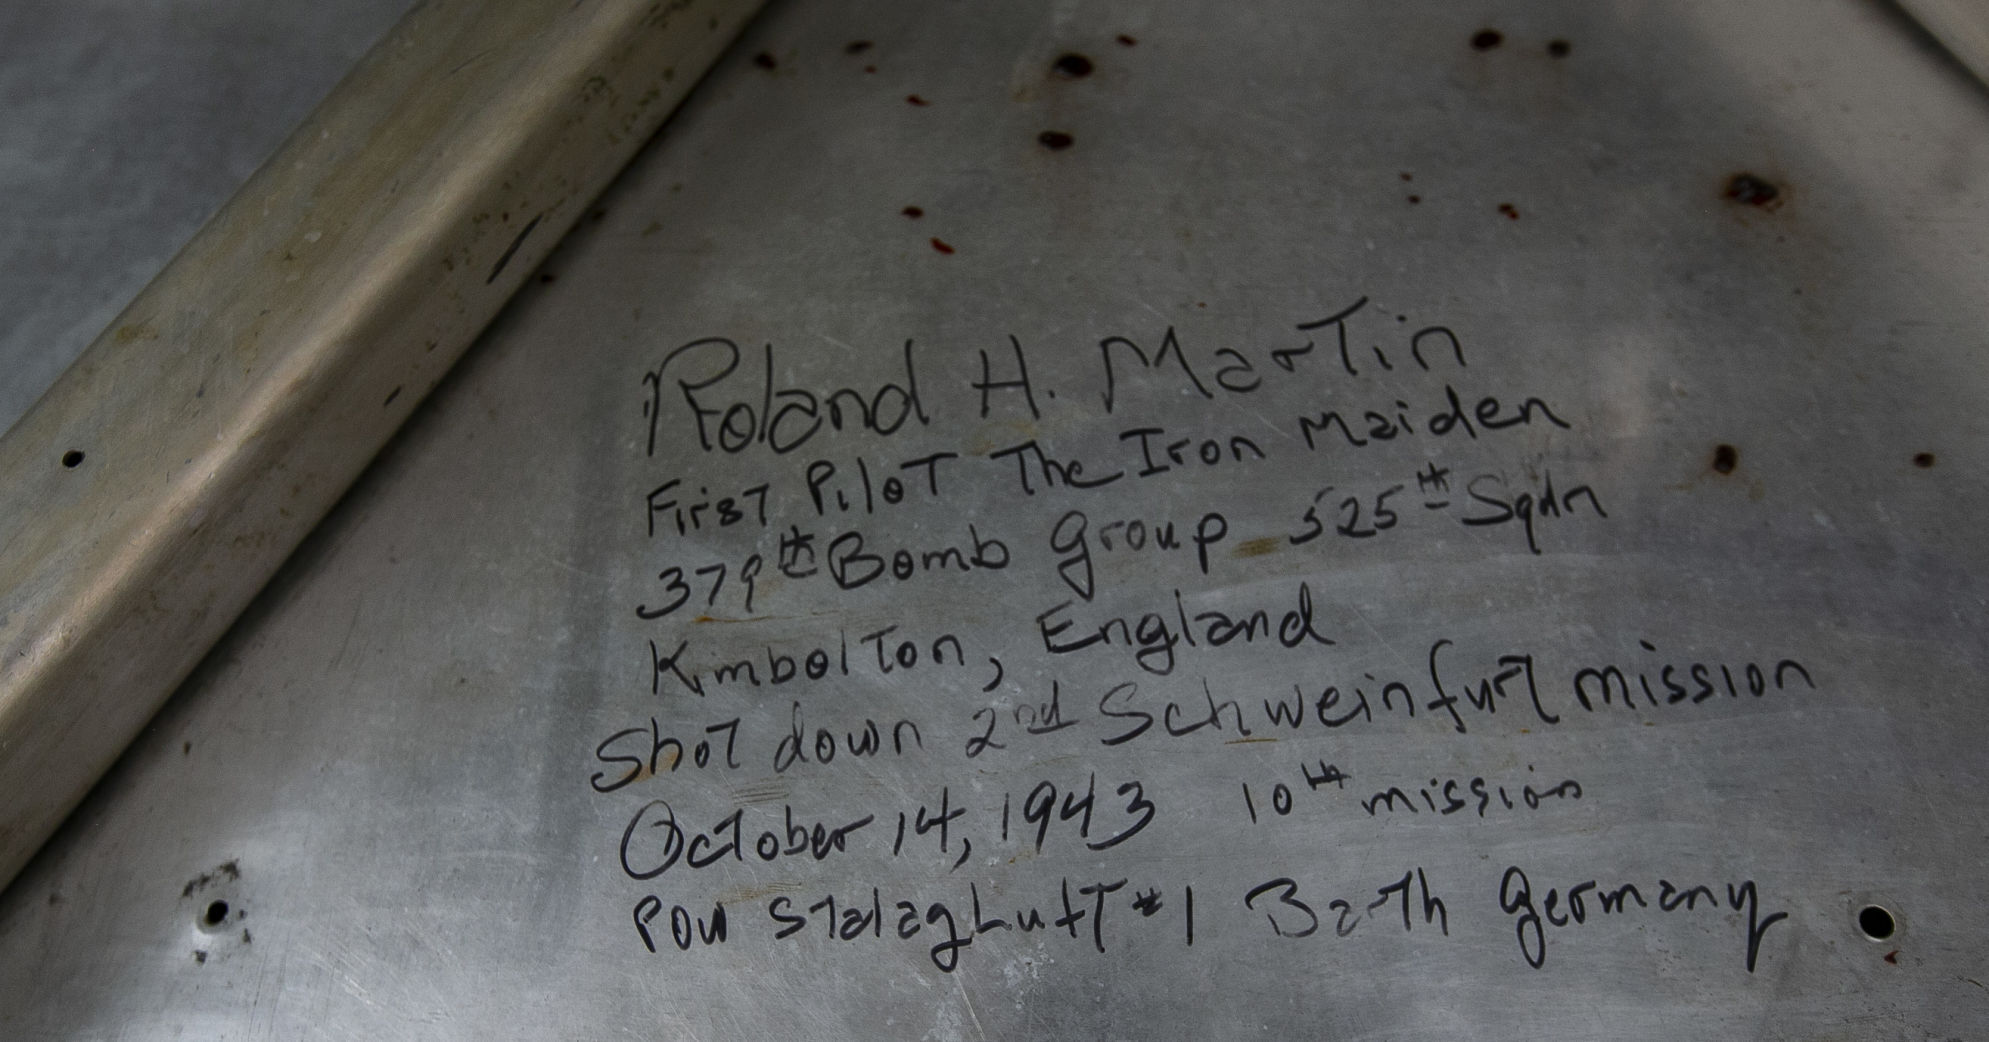 Roland H. Martin
First Pilot The Iron Maiden
379th Bomb Group 525th Sqdn
Kimbolton, England
Shot down 2nd Schweinfurt mission
October 14, 1943 10th mission
POW Stalag Luft #1 Barth Germany